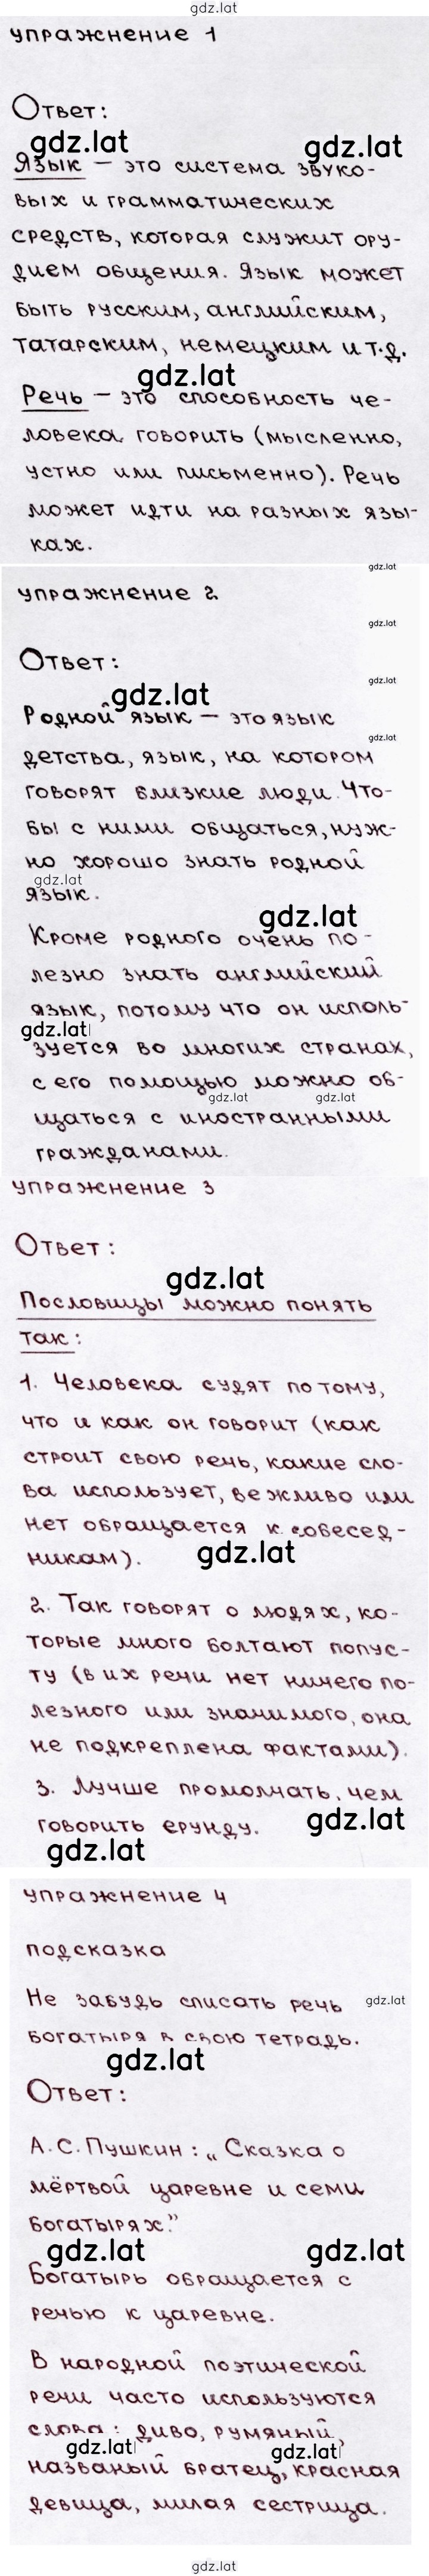 gdz.lat
упражнение 1
Ответ:
gdz.lat
gdz.lat
Язык – это система звуко-
вых и грамматических
средств, которая служит ору-
дием общения. Язык может
быть русским, английским,
татарским, немецким и т.д.
gdz.lat
Речь – это способность че-
ловека говорить (мысленно,
устно или письменно). Речь
может идти на разных язы-
ках.
gdz.lat
упражнение 2
gdz.lat
Ответ:
gdz.lat
gdz.lat
Родной язык – это язык
gdz.lat
детства, язык, на котором
говорят близкие люди. Что-
бы с ними общаться, нуж-
но хорошо знать родной
gdz.lat
язык.
gdz.lat
Кроме родного очень по-
лезно знать английский
язык, потому что он исполь-
gdz.lat
зуется во многих странах,
с его помощью можно об-
gdz.lat
gdz.lat
щаться с иностранными
гражданами.
упражнение 3
Ответ:
gdz.lat
Пословицы можно понять
так:
1. Человека судят по тому,
что и как он говорит (как
строит свою речь, какие сло-
ва использует, вежливо или
нет обращается к собесед-
никам).
gdz.lat
2. Так говорят о людях, ко-
торые много болтают попус-
ту (в их речи нет ничего по-
лезного или значимого, она
не подкреплена фактами).
3. Лучше промолчать, чем
говорить ерунду.
gdz.lat
gdz.lat
упражнение 4
подсказка
Не забудь списать речь
gdz.lat
богатыря в свою тетрадь.
gdz.lat
Ответ:
А.С. Пушкин: „Сказка о
мёртвой царевне и семи
богатырях."
gdz.lat
gdz.lat
Богатырь обращается с
речью к царевне.
В народной поэтической
речи часто используются
слова: диво, румяный,
gdz.lat
gdz.lat
названый братец, красная
девица, милая сестрица.
gdz.lat